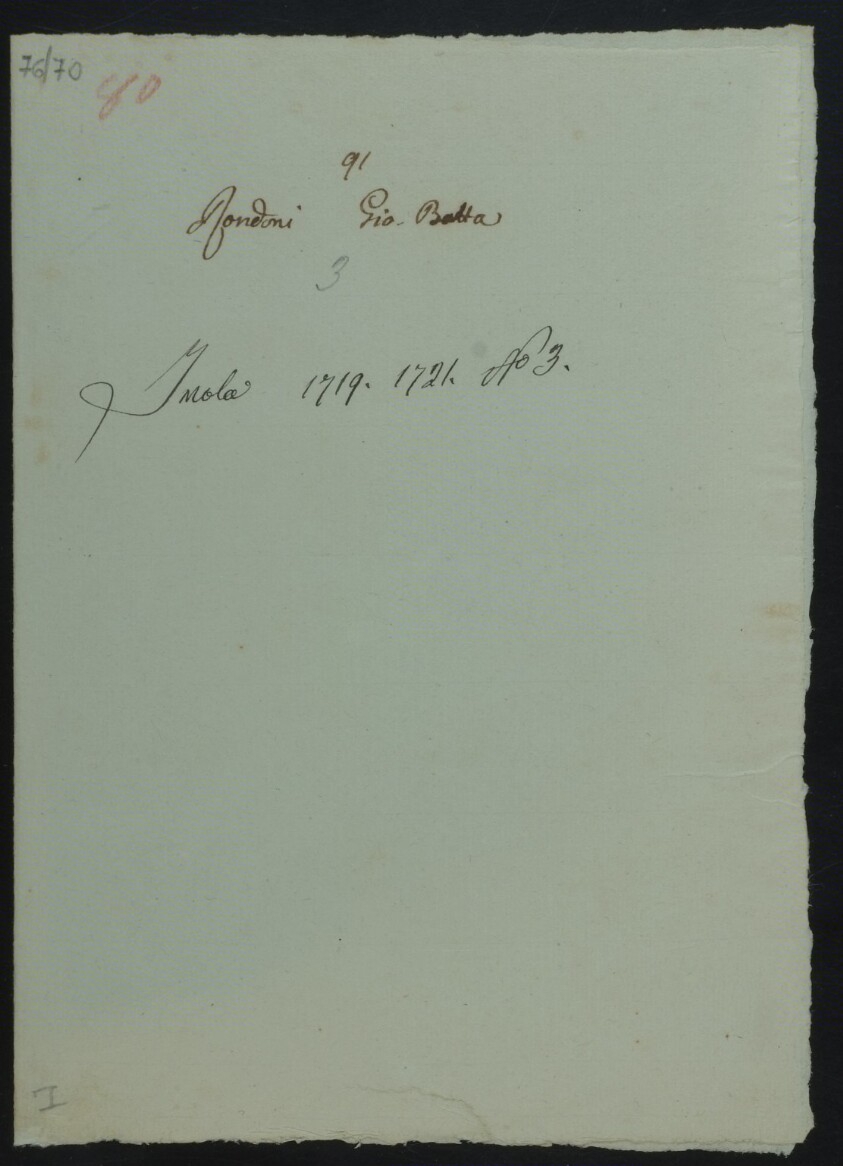 76/70
80
91
Rondoni Gio. Batta
3
Imola 1719. 1721. No 3.
I